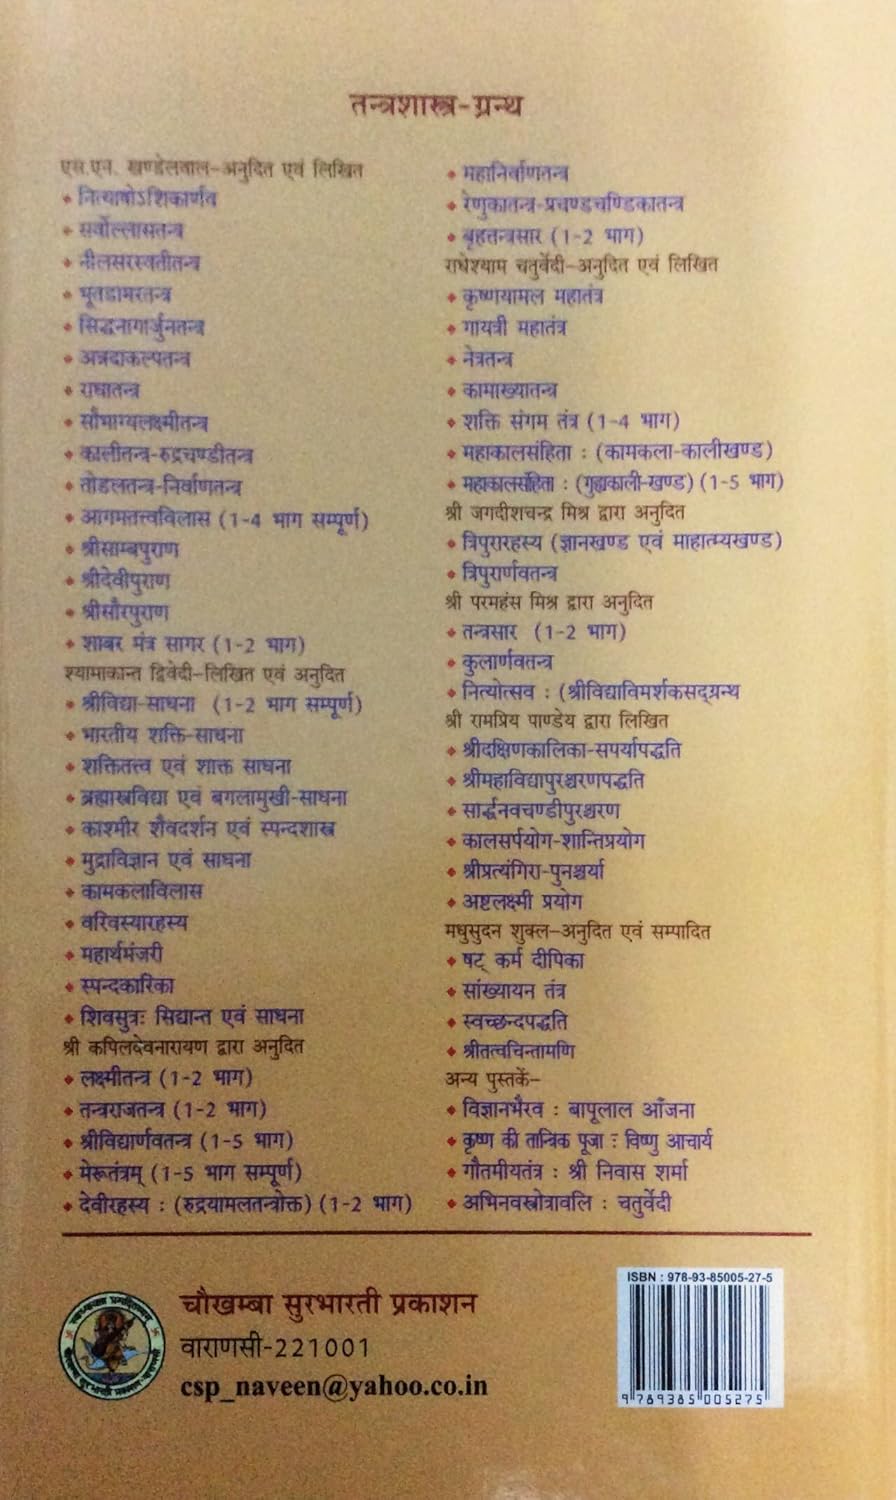 तन्त्रशास्त्र-ग्रन्थ
एस.एन. खण्डेलवाल-अनुदित एवं लिखित
• नित्याषोऽशिकार्णव
• सर्वोल्लासतन्त्र
• नीलसरस्वतीतन्त्र
• भूतडामरतन्त्र
• सिद्धनागार्जुनतन्त्र
• अन्नदाकल्पतन्त्र
• राधातन्त्र
• सौभाग्यलक्ष्मीतन्त्र
• कालीतन्त्र-रुद्रचण्डीतन्त्र
• तोडलतन्त्र-निर्वाणतन्त्र
• आगमतत्त्वविलास (1-4 भाग सम्पूर्ण)
• श्रीसाम्बपुराण
• श्रीदेवीपुराण
• श्रीसौरपुराण
• शाबर मंत्र सागर (1-2 भाग)
श्यामाकान्त द्विवेदी-लिखित एवं अनुदित
• श्रीविद्या-साधना (1-2 भाग सम्पूर्ण)
• भारतीय शक्ति-साधना
• शक्तितत्त्व एवं शाक्त साधना
• ब्रह्मास्त्रविद्या एवं बगलामुखी-साधना
• काश्मीर शैवदर्शन एवं स्पन्दशास्त्र
• मुद्राविज्ञान एवं साधना
• कामकलाविलास
• वरिवस्यारहस्य
• महार्थमंजरी
• स्पन्दकारिका
• शिवसुत्रः सिद्यान्त एवं साधना
श्री कपिलदेवनारायण द्वारा अनुदित
• लक्ष्मीतन्त्र (1-2 भाग)
• तन्त्रराजतन्त्र (1-2 भाग)
• श्रीविद्यार्णवतन्त्र (1-5 भाग)
• मेरूतंत्रम् (1-5 भाग सम्पूर्ण)
• देवीरहस्य : (रुद्रयामलतन्त्रोक्त) (1-2 भाग)
• महानिर्वाणतन्त्र
• रेणुकातन्त्र-प्रचण्डचण्डिकातन्त्र
• बृहत्तन्त्रसार (1-2 भाग)
राधेश्याम चतुर्वेदी-अनुदित एवं लिखित
• कृष्णयामल महातंत्र
• गायत्री महातंत्र
• नेत्रतन्त्र
• कामाख्यातन्त्र
• शक्ति संगम तंत्र (1-4 भाग)
• महाकालसंहिता : (कामकला-कालीखण्ड)
• महाकालसंहिता : (गुह्यकाली-खण्ड) (1-5 भाग)
श्री जगदीशचन्द्र मिश्र द्वारा अनुदित
• त्रिपुरारहस्य (ज्ञानखण्ड एवं माहात्म्यखण्ड)
• त्रिपुरार्णवतन्त्र
श्री परमहंस मिश्र द्वारा अनुदित
• तन्त्रसार (1-2 भाग)
• कुलार्णवतन्त्र
• नित्योत्सव : (श्रीविद्याविमर्शकसद्ग्रन्थ
श्री रामप्रिय पाण्डेय द्वारा लिखित
• श्रीदक्षिणकालिका-सपर्यापद्धति
• श्रीमहाविद्यापुरश्चरणपद्धति
• सार्द्धनवचण्डीपुरश्चरण
• कालसर्पयोग-शान्तिप्रयोग
• श्रीप्रत्यंगिरा-पुनश्चर्या
• अष्टलक्ष्मी प्रयोग
मधुसुदन शुक्ल-अनुदित एवं सम्पादित
• षट् कर्म दीपिका
• सांख्यायन तंत्र
• स्वच्छन्दपद्धति
• श्रीतत्वचिन्तामणि
अन्य पुस्तकें-
• विज्ञानभैरव : बापूलाल आँजना
• कृष्ण की तान्त्रिक पूजा : विष्णु आचार्य
• गौतमीयतंत्र : श्री निवास शर्मा
• अभिनवस्तोत्रावलि : चतुर्वेदी
चौखम्बा सुरभारती प्रकाशन
वाराणसी-221001
csp_naveen@yahoo.co.in
ISBN : 978-93-85005-27-5
9 789385 005275